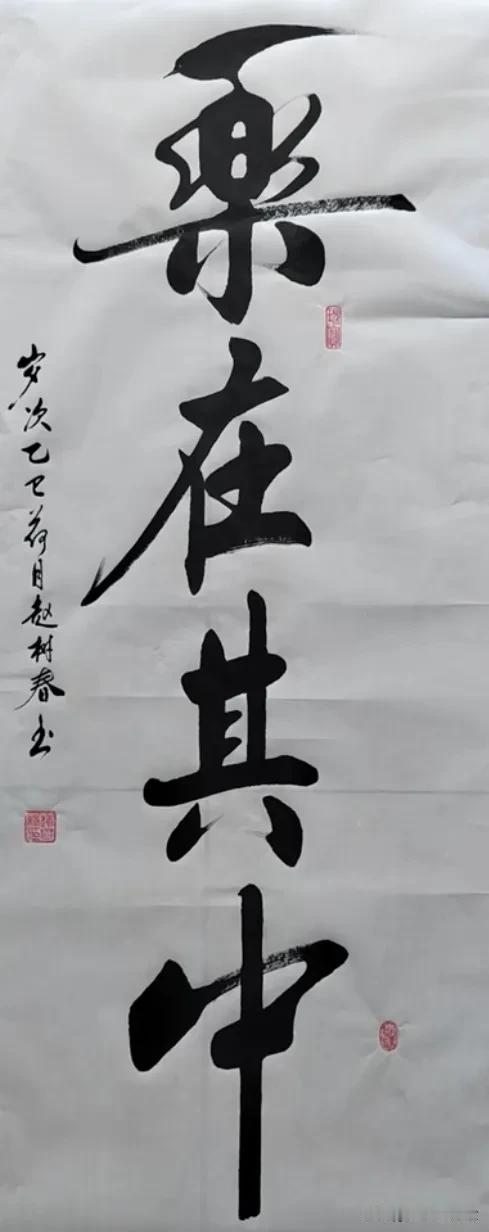 樂在其中
岁次乙巳荷月赵树春书